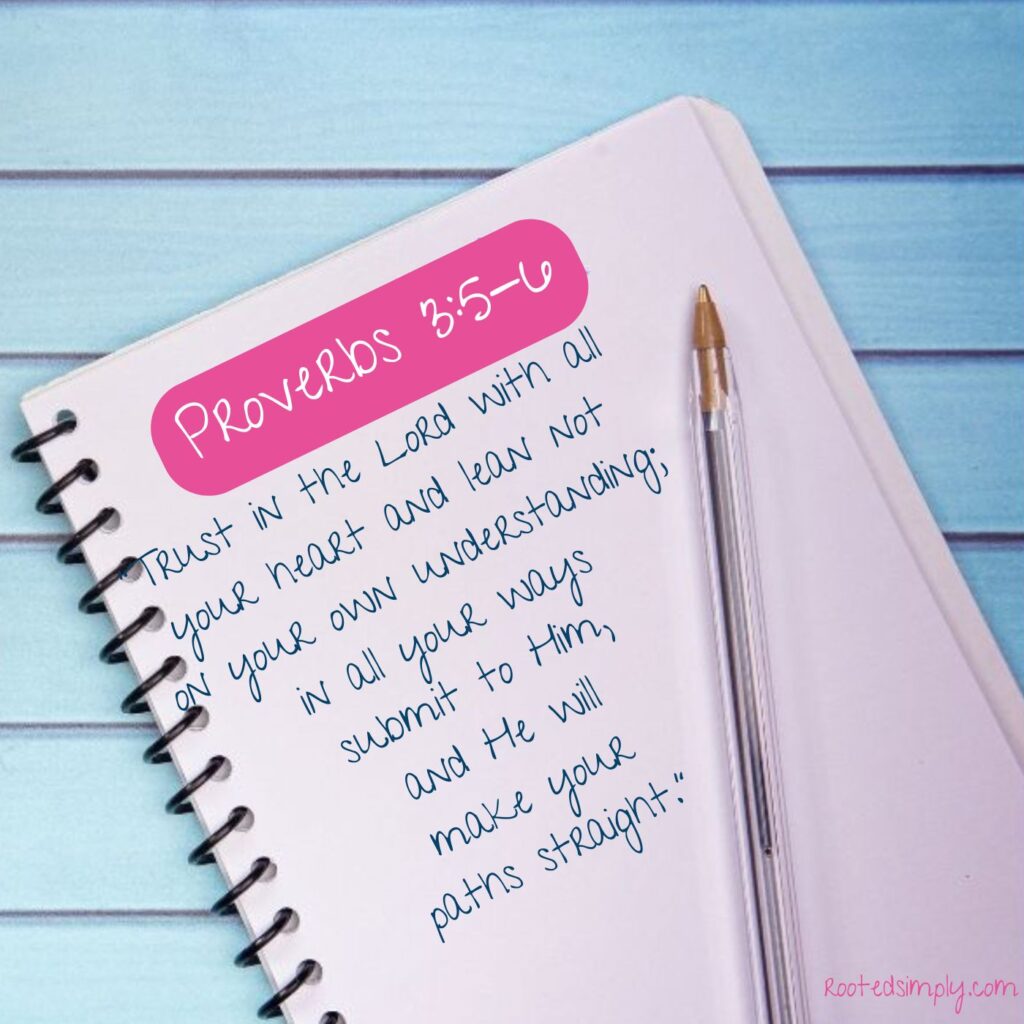 Proverbs 3:5-6
"Trust in the Lord with all
your heart and lean not
on your own understanding;
in all your ways
submit to Him,
and He will
make your
paths straight."
Rootedsimply.com